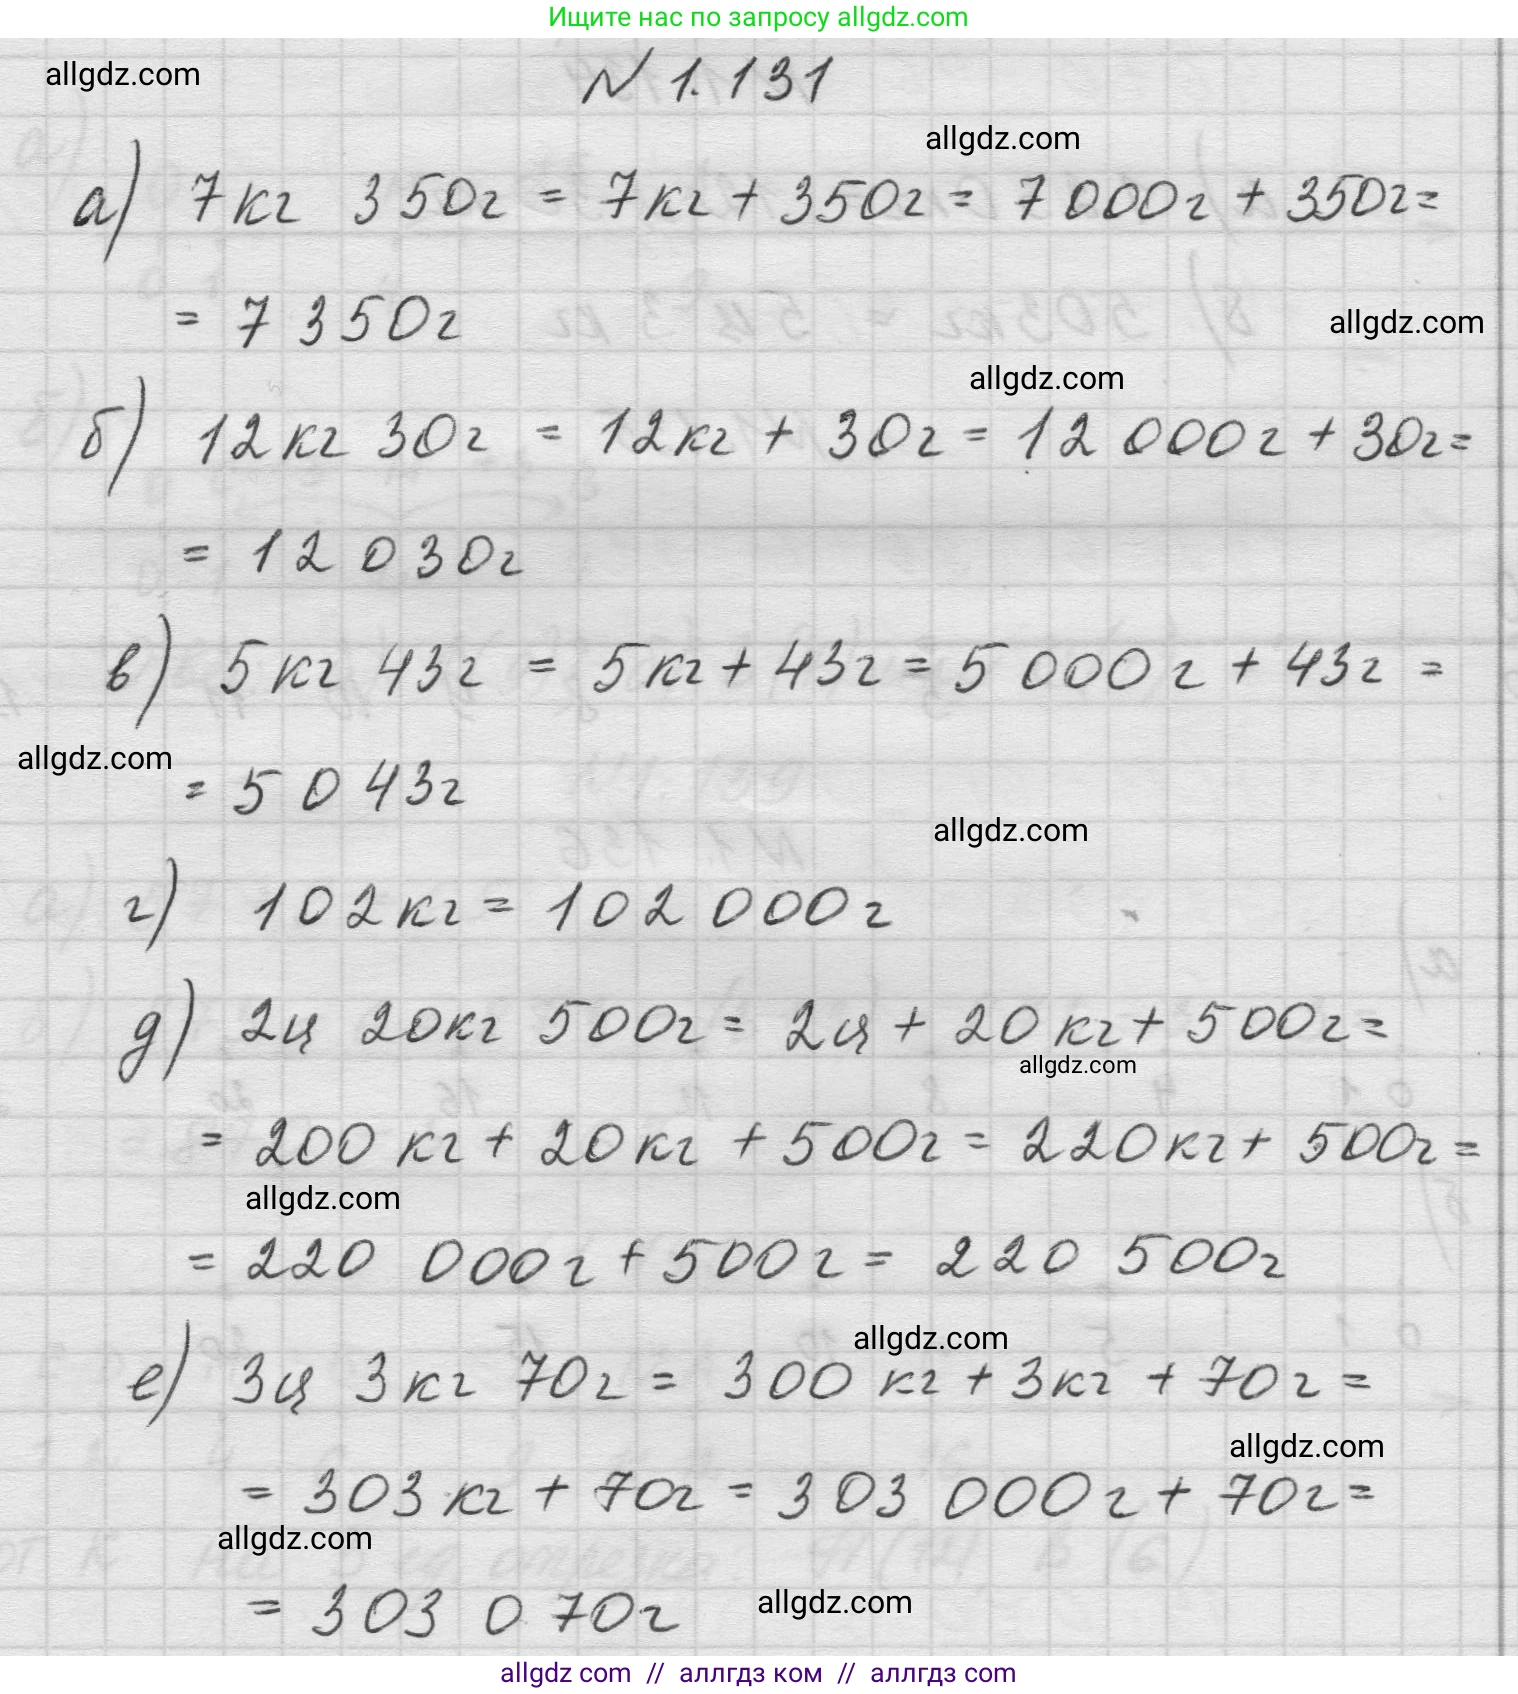 Ищите нас по запросу allgdz.com
allgdz.com
N 1.131
allgdz.com
а) 7кг 350г = 7кг + 350г = 7 000г + 350г =
= 7 350г
allgdz.com
allgdz.com
б) 12кг 30г = 12кг + 30г = 12 000г + 30г =
= 12 030г
в) 5кг 43г = 5кг + 43г = 5 000г + 43г =
allgdz.com
= 5 043г
allgdz.com
г) 102кг = 102 000г
д) 2ц 20кг 500г = 2ц + 20кг + 500г =
allgdz.com
= 200кг + 20кг + 500г = 220кг + 500г =
allgdz.com
= 220 000г + 500г = 220 500г
allgdz.com
е) 3ц 3кг 70г = 300кг + 3кг + 70г =
allgdz.com
= 303кг + 70г = 303 000г + 70г =
allgdz.com
= 303 070г
allgdz.com
allgdz com // аллгдз ком // аллгдз com